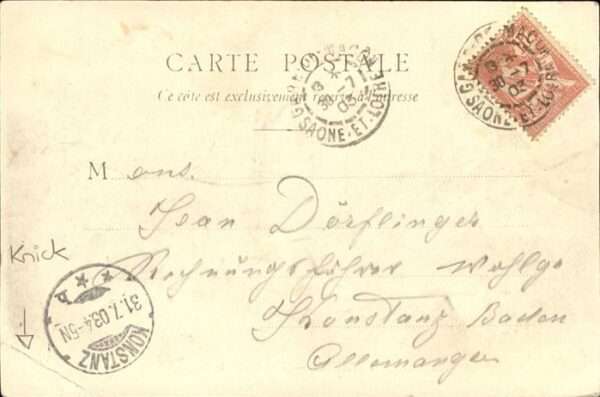 CARTE POSTALE
Ce côté est exclusivement réservé à l'adresse
GARE DE MACON
13
31-7
03
SAONE-ET-LOIRE
GARE DE MACON
13
31-7
03
SAONE-ET-LOIRE
Mons.
Jean Dörflinger
Rechnungsführer Wohlge
Konstanz Baden
Allemange
Knick
KONSTANZ
31.7.03.4-5N